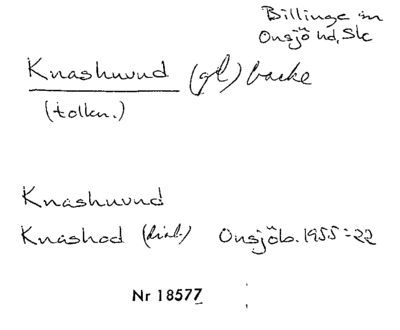 Billinge sn
Onsjö hd, Sk
Knashuvud (gl) backe
(tolkn.)
Knashuvud
Knashod (dial.) Onsjöb. 1955:22
Nr 18577